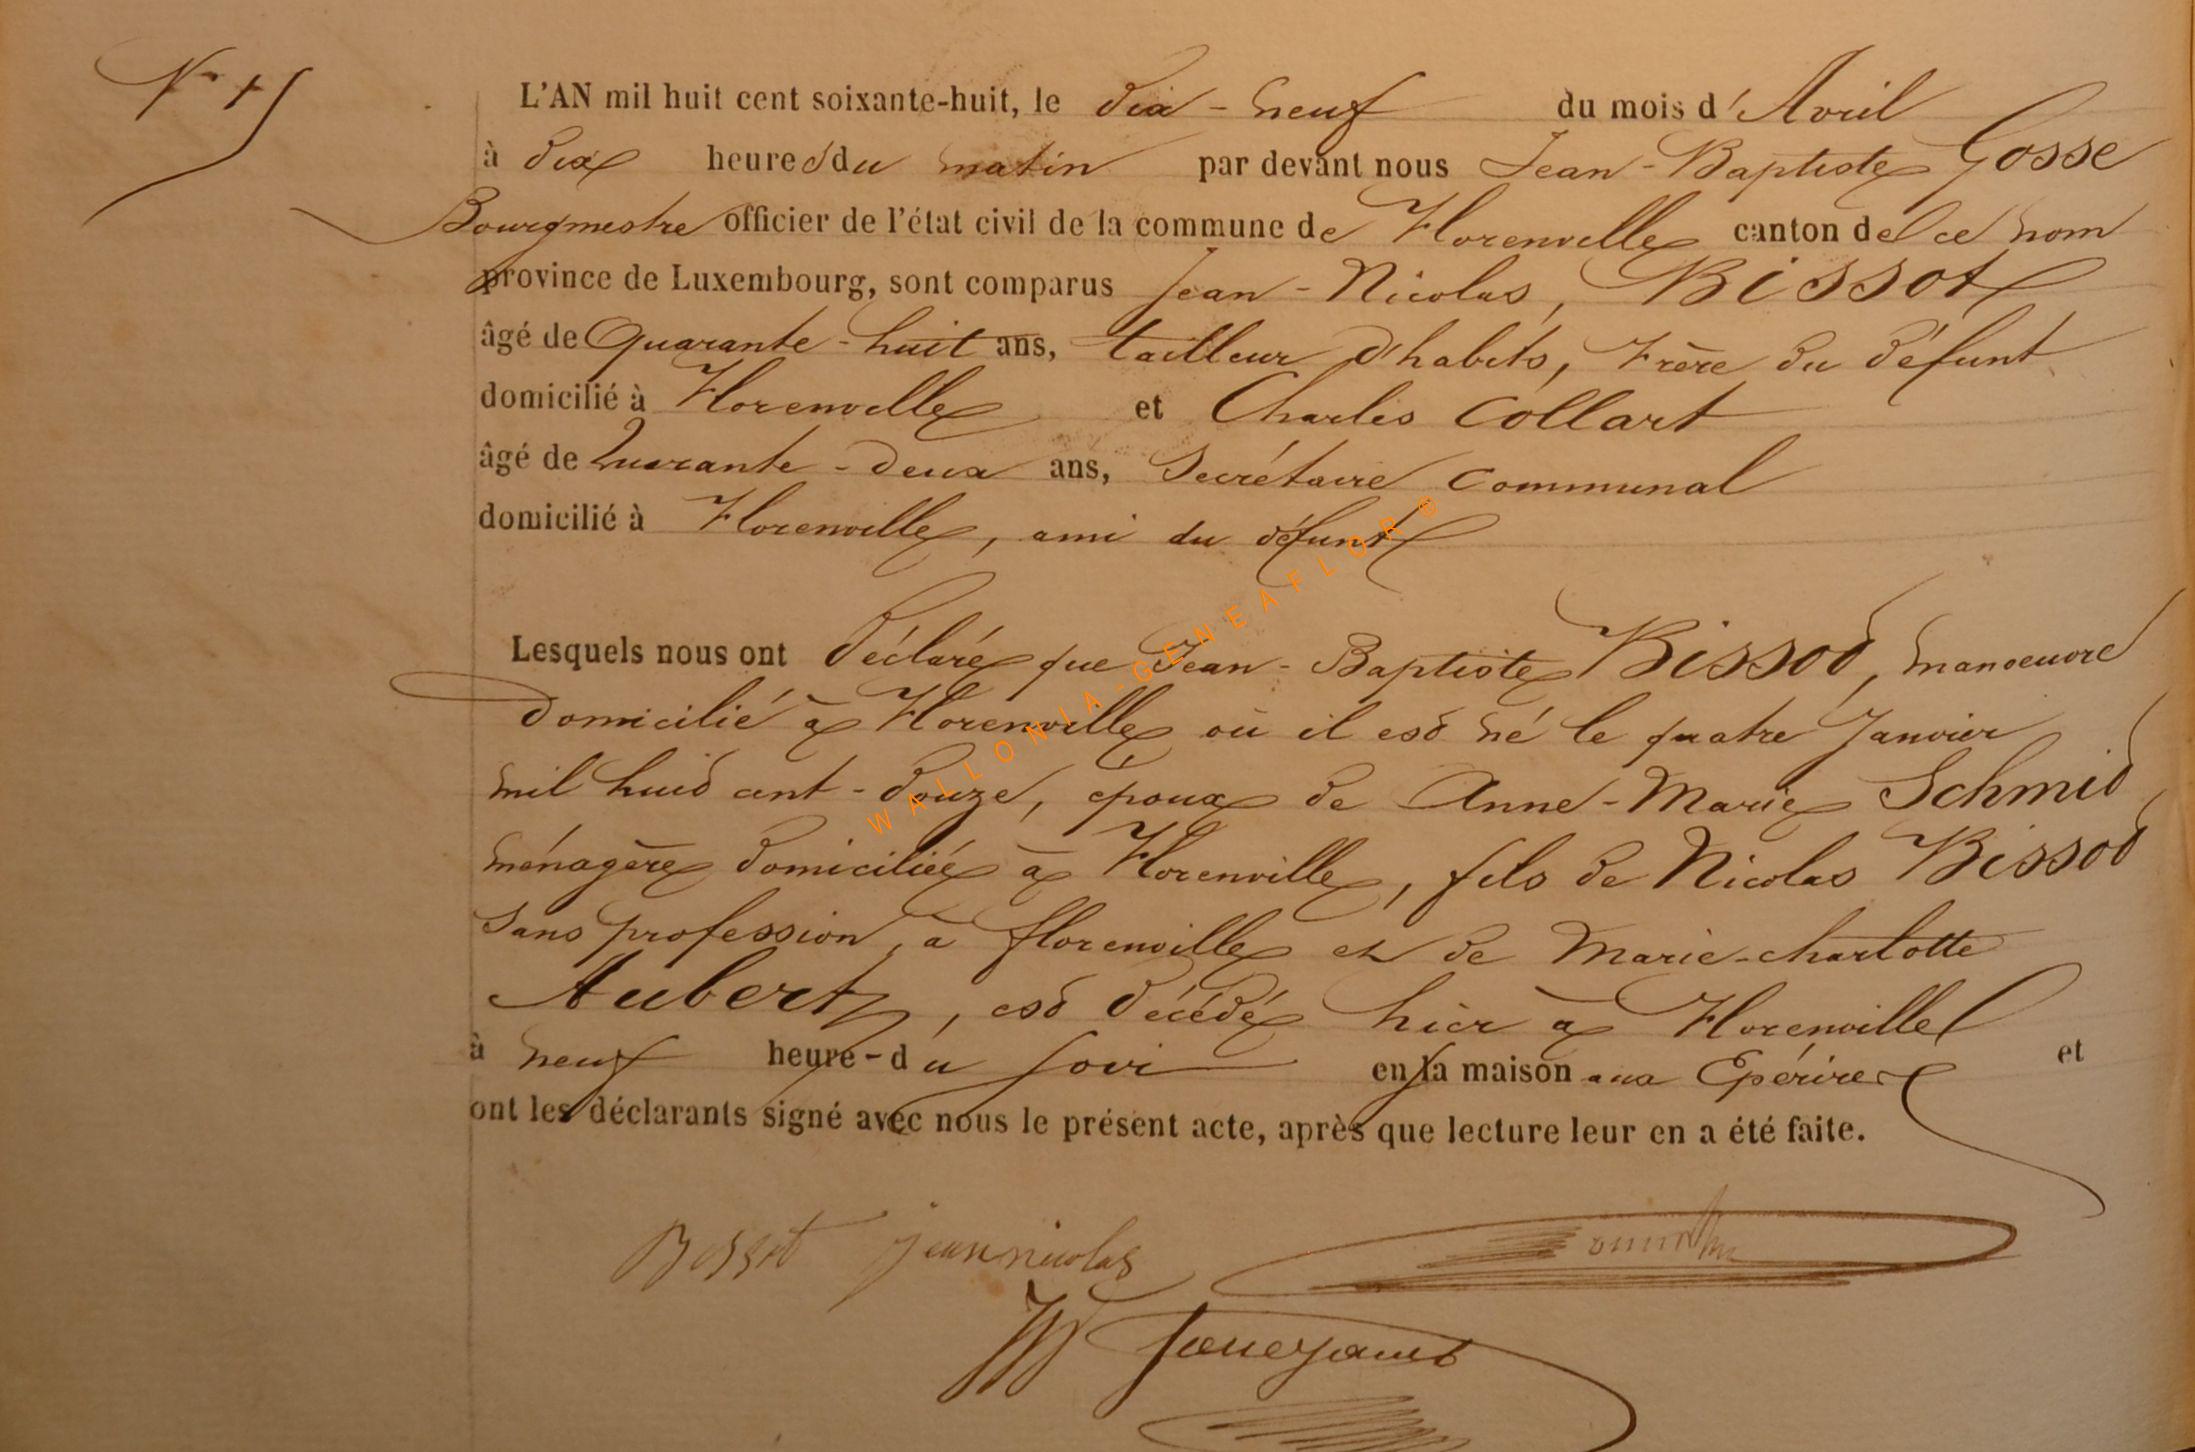 N° 15
L'AN mil huit cent soixante-huit, le dix-neuf du mois d'Avril
à dix heures du matin par devant nous Jean-Baptiste Gosse
Bourgmestre officier de l'état civil de la commune de Florenville canton de ce nom
province de Luxembourg, sont comparus Jean-Nicolas, Bissot
âgé de Quarante-huit ans, tailleur d'habits, Frère du défunt
domicilié à Florenville et Charles Collart
âgé de Quarante-deux ans, Secrétaire Communal
domicilié à Florenville, ami du défunt
Lesquels nous ont déclaré que Jean-Baptiste Bissot, manoeuvre
domicilié à Florenville où il est né le quatre Janvier
mil huit cent-douze, époux de Anne-Marie Schmit
ménagère domiciliée à Florenville, fils de Nicolas Bissot
sans profession, à florenville et de Marie-charlotte
Aubert, est décédé hier à Florenville
à neuf heure-du soir en la maison aux Epérires et
ont les déclarants signé avec nous le présent acte, après que lecture leur en a été faite.
Bissot jean nicolas
WALLONIA-GENEAFLOR®